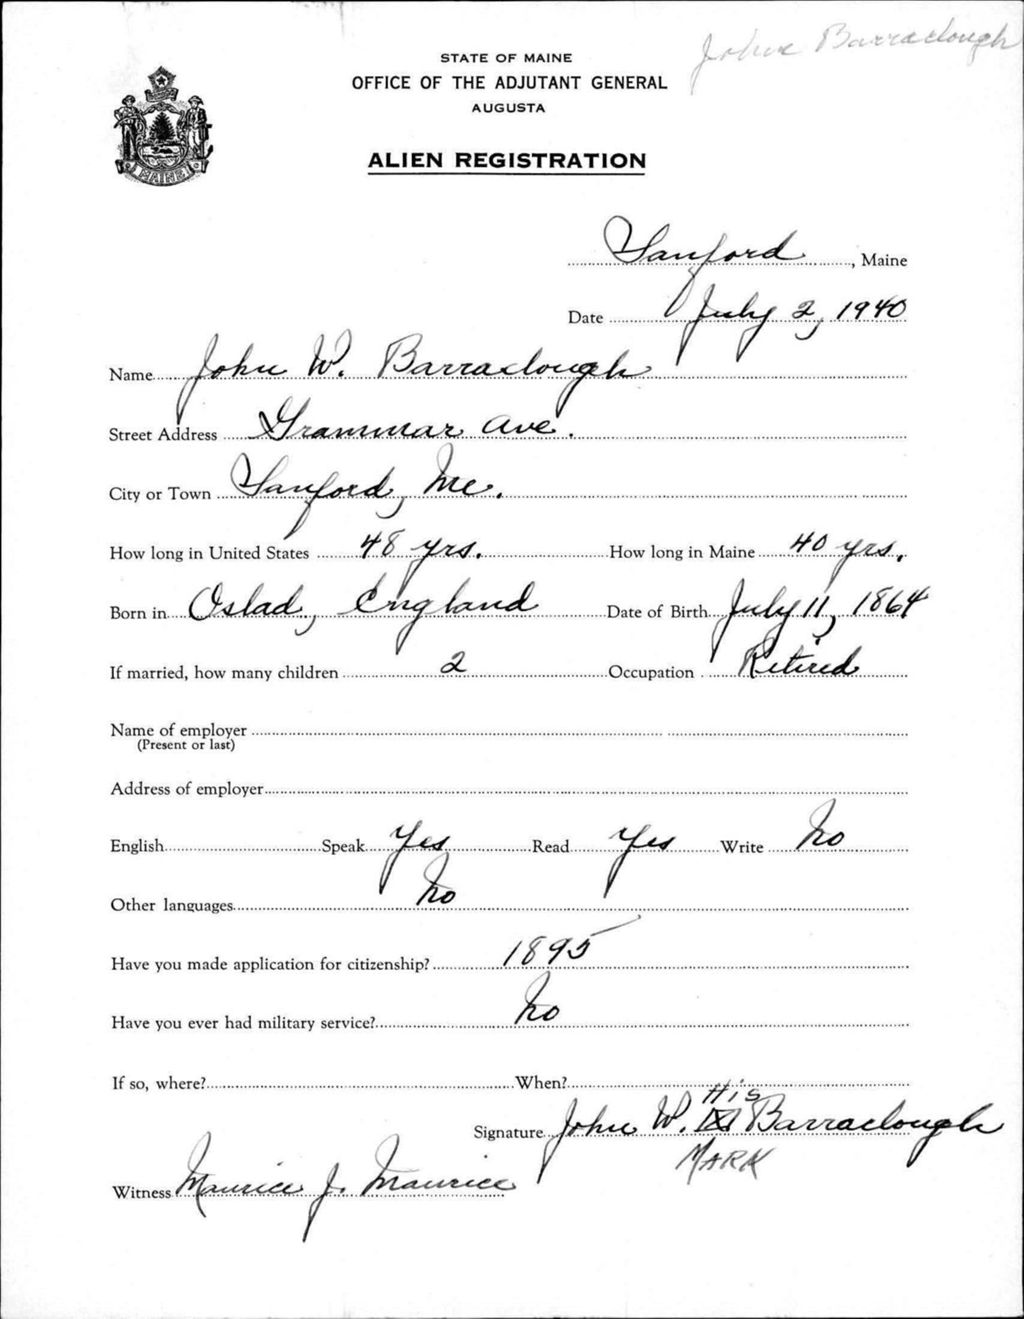 John Barraclough
STATE OF MAINE
OFFICE OF THE ADJUTANT GENERAL
AUGUSTA
ALIEN REGISTRATION
Sanford, Maine
Date July 2, 1940
Name John W. Barraclough
Street Address Grammar Ave.
City or Town Sanford, Me.
How long in United States 48 yrs. How long in Maine 40 yrs.
Born in Oslad, England Date of Birth July 11, 1864
If married, how many children 2 Occupation Retired
Name of employer
(Present or last)
Address of employer
English Speak Yes Read Yes Write No
Other languages No
Have you made application for citizenship? 1895
Have you ever had military service? No
If so, where? When?
His
Signature John W. X Barraclough
MARK
Witness Maurice J. Maurice